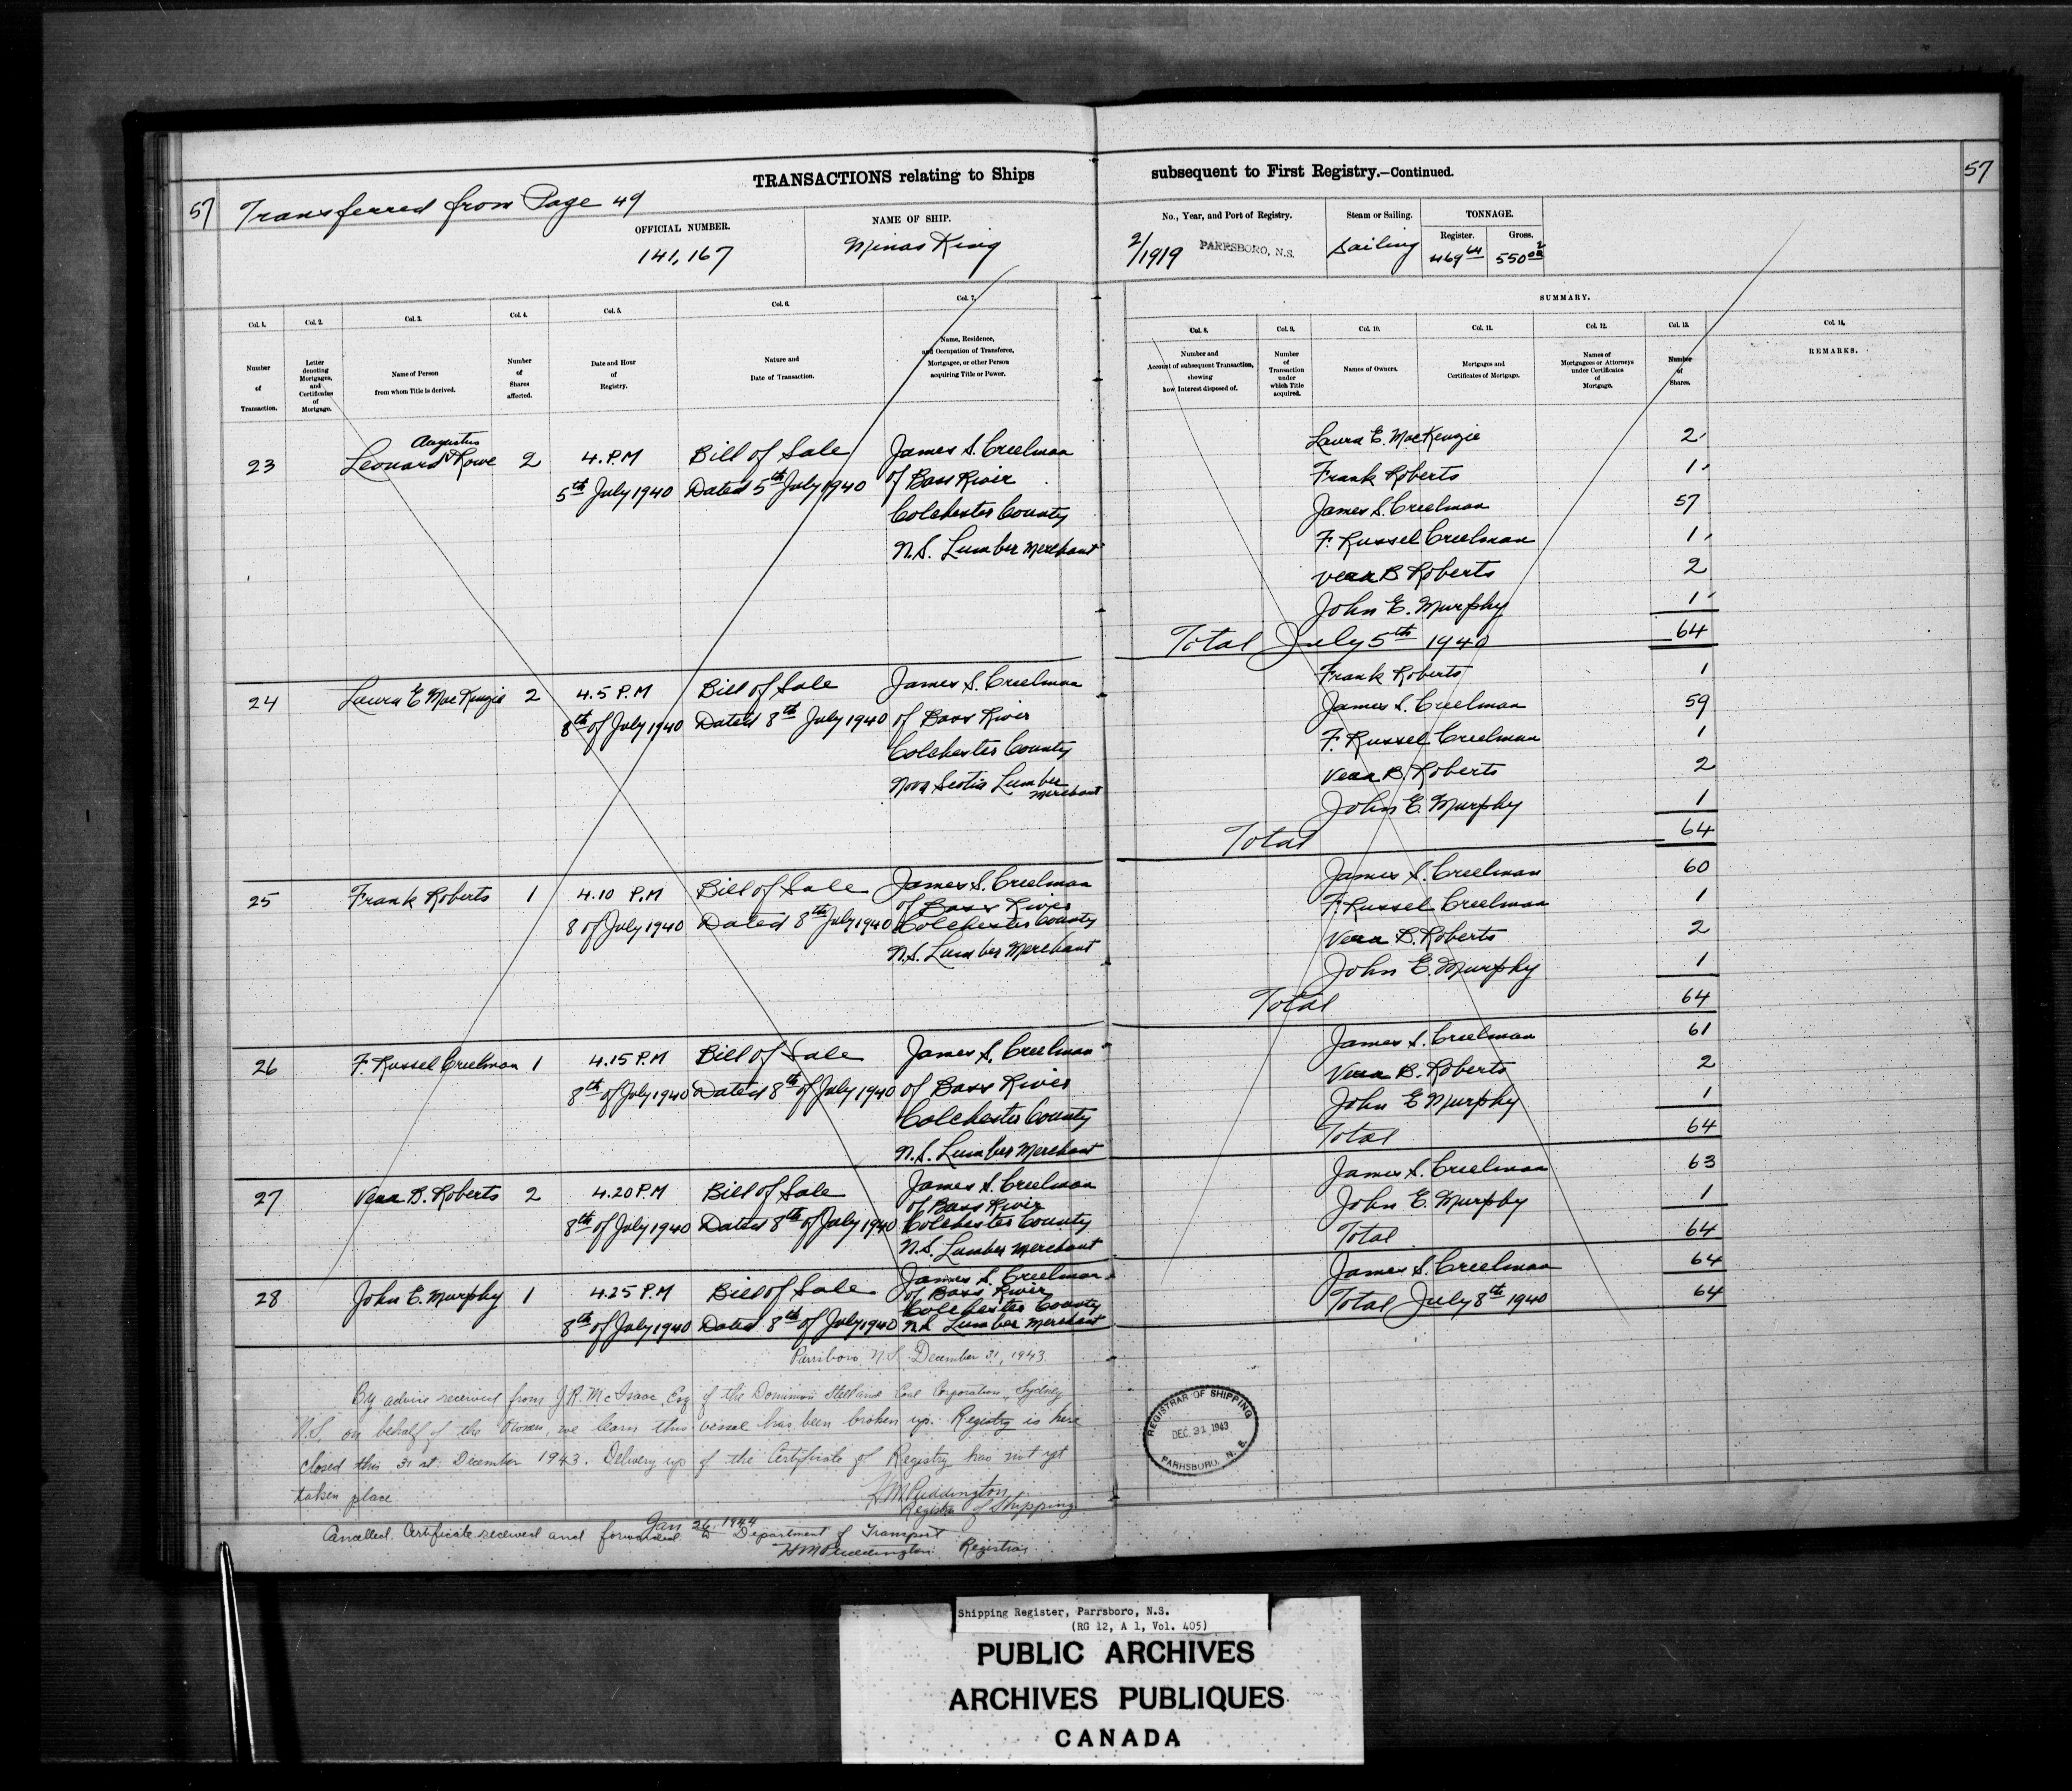 TRANSACTIONS relating to Ships subsequent to First Registry.—Continued.
57 Transferred from Page 49 57
OFFICIAL NUMBER. NAME OF SHIP. No., Year, and Port of Registry. Steam or Sailing. TONNAGE.
Register. Gross.
141,167 Minas King 2/1919 PARRSBORO, N.S. Sailing 469 64 550 02
SUMMARY.
Col. 1. Col. 2. Col. 3. Col. 4. Col. 5. Col. 6. Col. 7. Col. 8. Col. 9. Col. 10. Col. 11. Col. 12. Col. 13. Col. 14.
Number of Transaction.
Letter denoting Mortgages, and Certificates of Mortgage.
Name of Person from whom Title is derived.
Number of Shares affected.
Date and Hour of Registry.
Nature and Date of Transaction.
Name, Residence, and Occupation of Transferee, Mortgagee, or other Person acquiring Title or Power.
Number and Account of subsequent Transaction, showing how Interest disposed of.
Number of Transaction under which Title acquired.
Names of Owners.
Mortgages and Certificates of Mortgage.
Names of Mortgagees or Attorneys under Certificates of Mortgage.
Number of Shares.
REMARKS.
Augustus
23 Leonard Rowe 2 4.P.M Bill of Sale James S. Creelman
5th July 1940 Dated 5th July 1940 of Bass River
Colchester County
N.S. Lumber Merchant
Laura E. MacKenzie 2
Frank Roberts 1
James S. Creelman 57
F. Russel Creelman 1
Vera B Roberts 2
John E. Murphy 1
Total July 5th 1940 64
24 Laura E MacKenzie 2 4.5 P.M Bill of Sale James S. Creelman
8th of July 1940 Dated 8th July 1940 of Bass River
Colchester County
Nova Scotia Lumber
Merchant
Frank Roberts 1
James S. Creelman 59
F. Russel Creelman 1
Vera B. Roberts 2
John E. Murphy 1
Total 64
25 Frank Roberts 1 4.10 P.M Bill of Sale James S. Creelman
of Bass River
8 of July 1940 Dated 8th July 1940 Colchester County
N.S. Lumber Merchant
James S. Creelman 60
F. Russel Creelman 1
Vera B. Roberts 2
John E. Murphy 1
Total 64
26 F. Russel Creelman 1 4.15 P.M Bill of Sale James S. Creelman
8th of July 1940 Dated 8th of July 1940 of Bass River
Colchester County
N.S. Lumber Merchant
James S. Creelman 61
Vera B. Roberts 2
John E Murphy 1
Total 64
27 Vera B. Roberts 2 4.20 P.M Bill of Sale James S. Creelman
of Bass River
8th of July 1940 Dated 8th of July 1940 Colchester County
N.S. Lumber Merchant
James S. Creelman 63
John E. Murphy 1
Total 64
28 John E. Murphy 1 4.25 P.M Bill of Sale James S. Creelman
of Bass River
Colchester County
8th of July 1940 Dated 8th of July 1940 N.S. Lumber Merchant
James S Creelman 64
Total July 8th 1940 64
Parrsboro N.S. December 31, 1943
By advice received from J.R. McIsaac, Esq of the Dominion Steel and Coal Corporation, Sydney
N.S. on behalf of the Owners, we learn this vessel has been broken up. Registry is here
closed this 31st December 1943. Delivery up of the Certificate of Registry has not yet
taken place
H M Puddington
Registrar of Shipping
Jan 26 1944
Cancelled. Certificate received and forwarded to Department of Transport
H M Puddington Registrar
REGISTRAR OF SHIPPING
DEC. 31 1943
PARRSBORO, N. S.
Shipping Register, Parrsboro, N.S.
(RG 12, A 1, Vol. 405)
PUBLIC ARCHIVES
ARCHIVES PUBLIQUES
CANADA